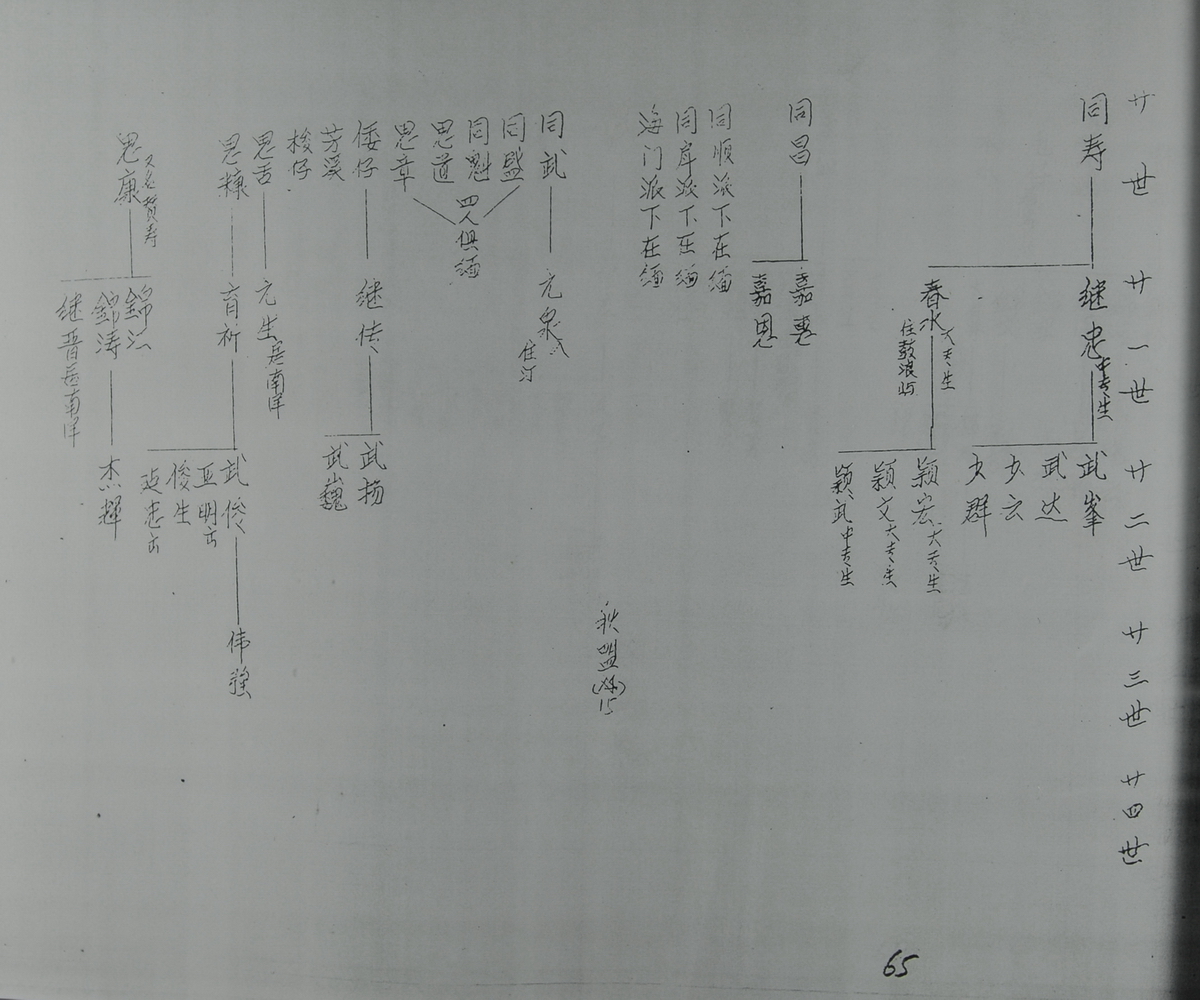 廿世
廿一世
廿二世
廿三世
廿四世
同寿
继忠中专生
武峯
武达
少云
少群
春水大专生
住鼓浪屿
颖宏大专生
颖文大专生
颖武中专生
同昌
嘉惠
嘉恩
同顺派下在缅
同岸派下在缅
海门派下在缅
秋盟
15
同武
元泉
住汀
同盛
同魁
思道
思章
四人俱缅
倭仔
继传
武扬
武巍
芳溪
梭仔
思舌
元生居南洋
思糠
育祈
武俊
亚明
俊生
志忠
伟强
思康
又名赞寿
錦江
錦涛
杰輝
继晋居南洋
65